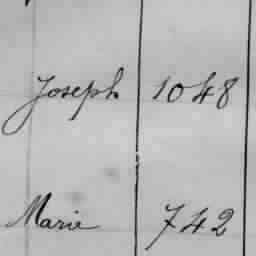 Joseph 1048
Marie 742